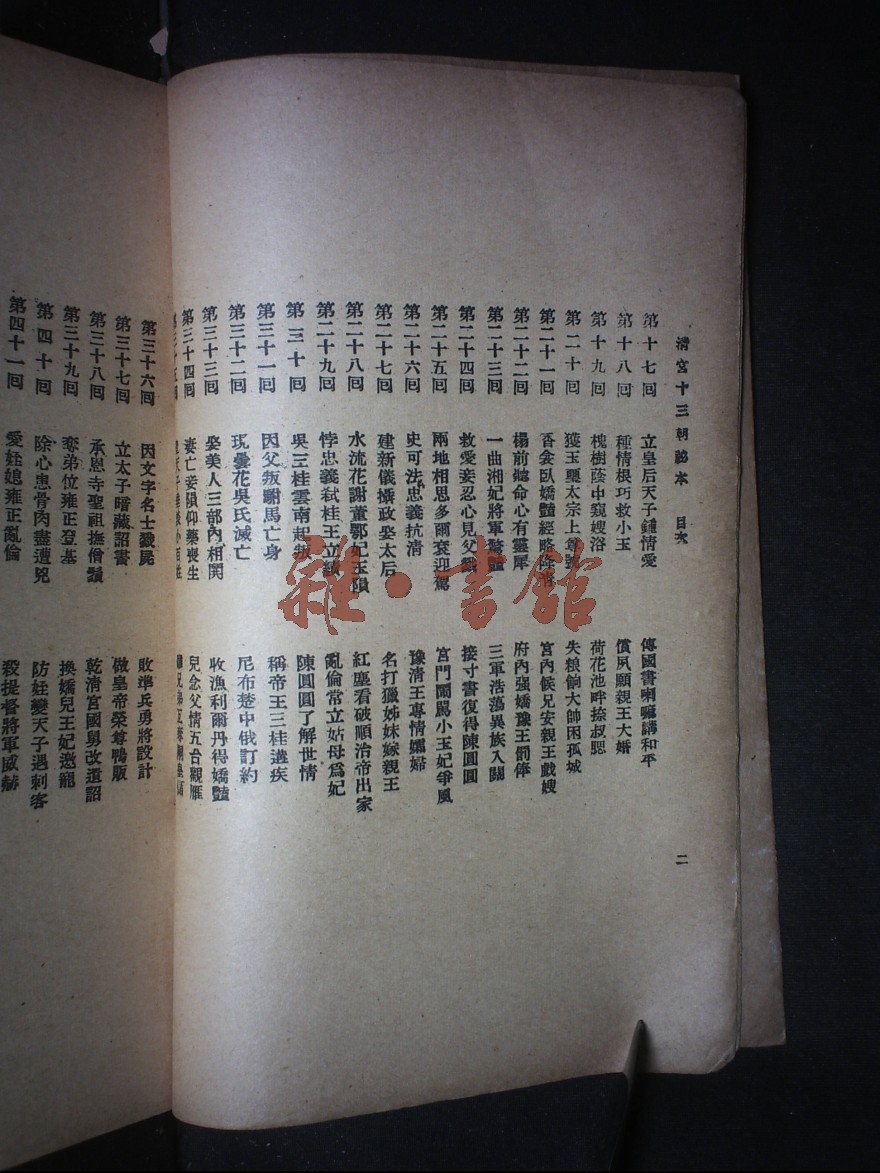 清宮十三朝秘本　目次　二
第十七回　立皇后天子鍾情愛　傳國書喇嘛講和平
第十八回　種情根巧救小玉　償夙願親王大婚
第十九回　槐樹蔭中窺嫂浴　荷花池畔捺叔腮
第二十回　獲玉璽太宗上尊號　失粮餉大帥困孤城
第二十一回　香衾臥嬌豔經略降清　宮內候兄安親王戲嫂
第二十二回　榻前聽命心有靈犀　府內強嬌豫王罰俸
第二十三回　一曲湘妃將軍驚豔　三軍浩蕩異族入關
第二十四回　救愛妾忍心見父戮　接寸書復得陳圓圓
第二十五回　兩地相思多爾袞迎駕　宮門鬧闖小玉妃爭風
第二十六回　史可法忠義抗清　豫清王專情孀婦
第二十七回　建新儀攝政娶太后　名打獵姊妹嫁親王
第二十八回　水流花謝董鄂妃玉隕　紅塵看破順治帝出家
第二十九回　悖忠義弒桂王立績　亂倫常立姑母爲妃
第三十回　吳三桂雲南起叛　陳圓圓了解世情
第三十一回　因父叛駙馬亡身　稱帝王三桂遘疾
第三十二回　現曇花吳氏滅亡　尼布楚中俄訂約
第三十三回　娶美人三部內相鬨　收漁利爾丹得嬌豔
第三十四回　妻亡妾殞仰藥喪生　兒念父情五台觀雁
第三十六回　因文字名士戮屍　敗準兵勇將設計
第三十七回　立太子暗藏詔書　做皇帝榮尊鴨販
第三十八回　承恩寺聖祖撫僧鬚　乾清宮國舅改遺詔
第三十九回　奪弟位雍正登基　換嬌兒王妃邀寵
第四十回　除心患骨肉盡遭兇　防妊變天子遇刺客
第四十一回　愛姪媳雍正亂倫　殺提督將軍威赫
雜·書館